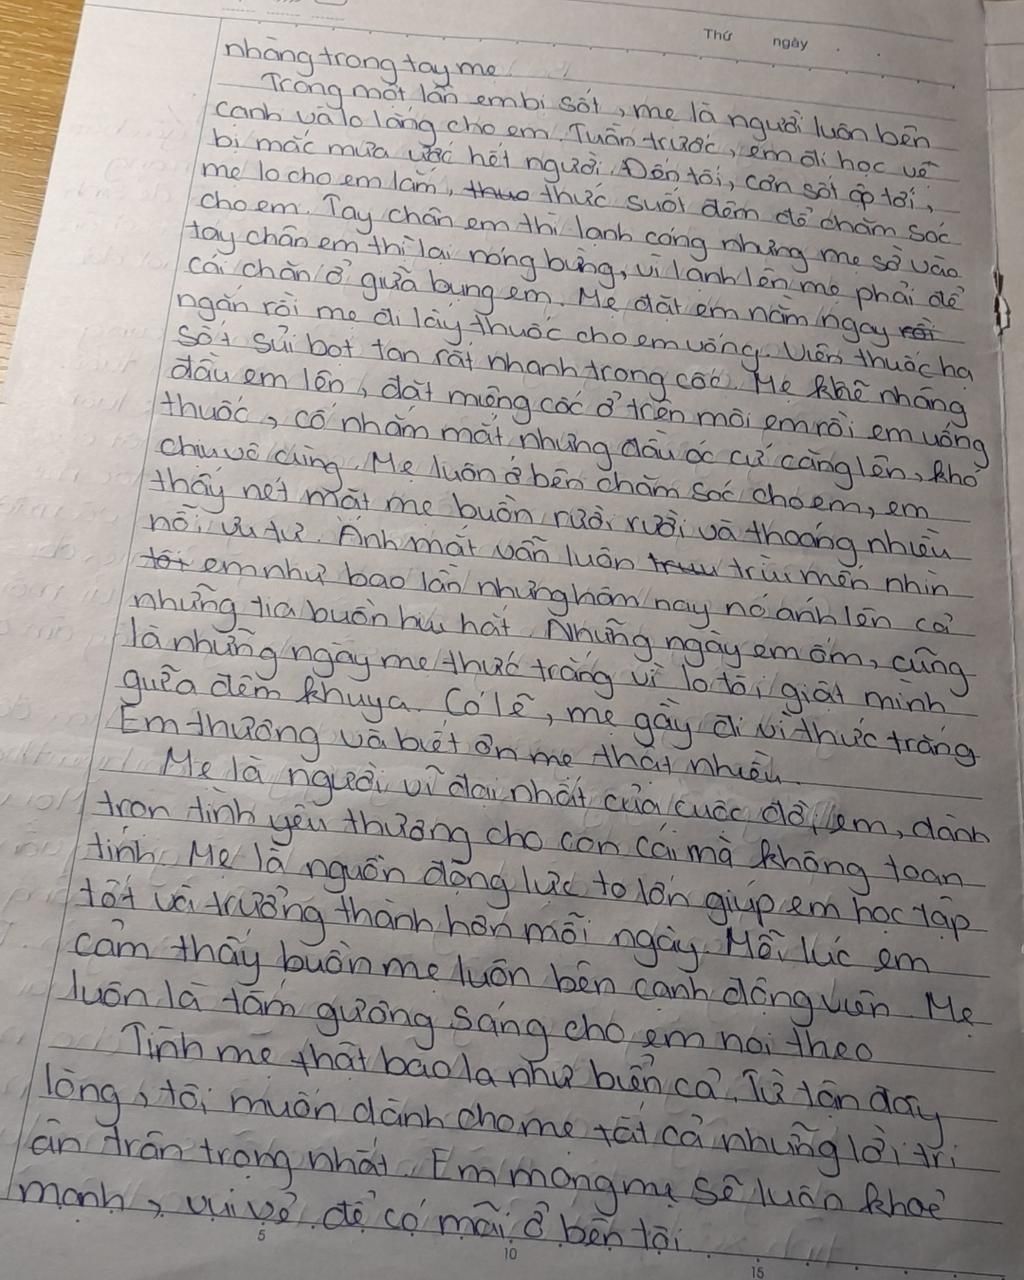 Thứ ngày
nhàng trong tay mẹ.
Trong một lần em bị sốt, mẹ là người luôn bên
cạnh và lo lắng cho em. Tuần trước, em đi học về
bị mắc mưa ước hết người. Đến tối, cơn sốt ập tới,
mẹ lo cho em lắm, thức suốt đêm để chăm sóc
cho em. Tay chân em thì lạnh cóng nhưng mẹ sờ vào
tay chân em thì lại nóng bừng, vì lạnh lên mẹ phải để
cái chăn ở giữa bụng em. Mẹ đặt em nằm ngay
ngắn rồi mẹ đi lấy thuốc cho em uống. Viên thuốc hạ
sốt sủi bọt tan rất nhanh trong cốc. Mẹ khẽ nhàng
đầu em lên, đặt miệng cốc ở trên môi em rồi em uống
thuốc, cố nhắm mắt nhưng đầu óc cứ căng lên, khó
chịu vô cùng. Mẹ luôn ở bên chăm sóc cho em, em
thấy nét mặt mẹ buồn rười rượi và thoáng nhiều
nỗi ưu tư. Ánh mắt vẫn luôn trìu mến nhìn
em như bao lần nhưng hôm nay nó ánh lên cả
những tia buồn hiu hắt. Những ngày em ốm, cũng
là những ngày mẹ thức trắng vì lo tôi giật mình
giữa đêm khuya. Có lẽ, mẹ gầy đi vì thức trắng
Em thương và biết ơn mẹ thật nhiều.
Mẹ là người vĩ đại nhất của cuộc đời em, dành
trọn tình yêu thương cho con cái mà không toan
tính. Mẹ là nguồn động lực to lớn giúp em học tập
tốt và trưởng thành hơn mỗi ngày. Mỗi lúc em
cảm thấy buồn mẹ luôn bên cạnh động viên. Mẹ
luôn là tấm gương sáng cho em noi theo
Tình mẹ thật bao la như biển cả. Từ tận đáy
lòng, tôi muốn dành cho mẹ tất cả những lời tri
ân trân trọng nhất. Em mong mẹ sẽ luôn khoẻ
mạnh, vui vẻ để có mãi ở bên tôi.
5 10 15